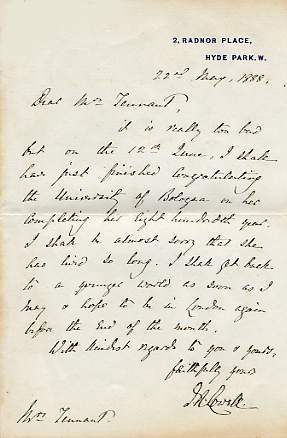 2, RADNOR PLACE,
HYDE PARK. W.
22nd May, 1888.
Dear Mrs Tennant,
it is really too bad
but on the 12th June, I shall
have just finished congratulating
the University of Bologna on her
completing her Eight hundredth year.
I shall be almost sorry that she
has lived so long. I shall get back
to a younger world as soon as I
may & hope to be in London again
before the End of the month.
With kindest regards to you & yours,
faithfully yours
J. R. Lowell.
Mrs Tennant.